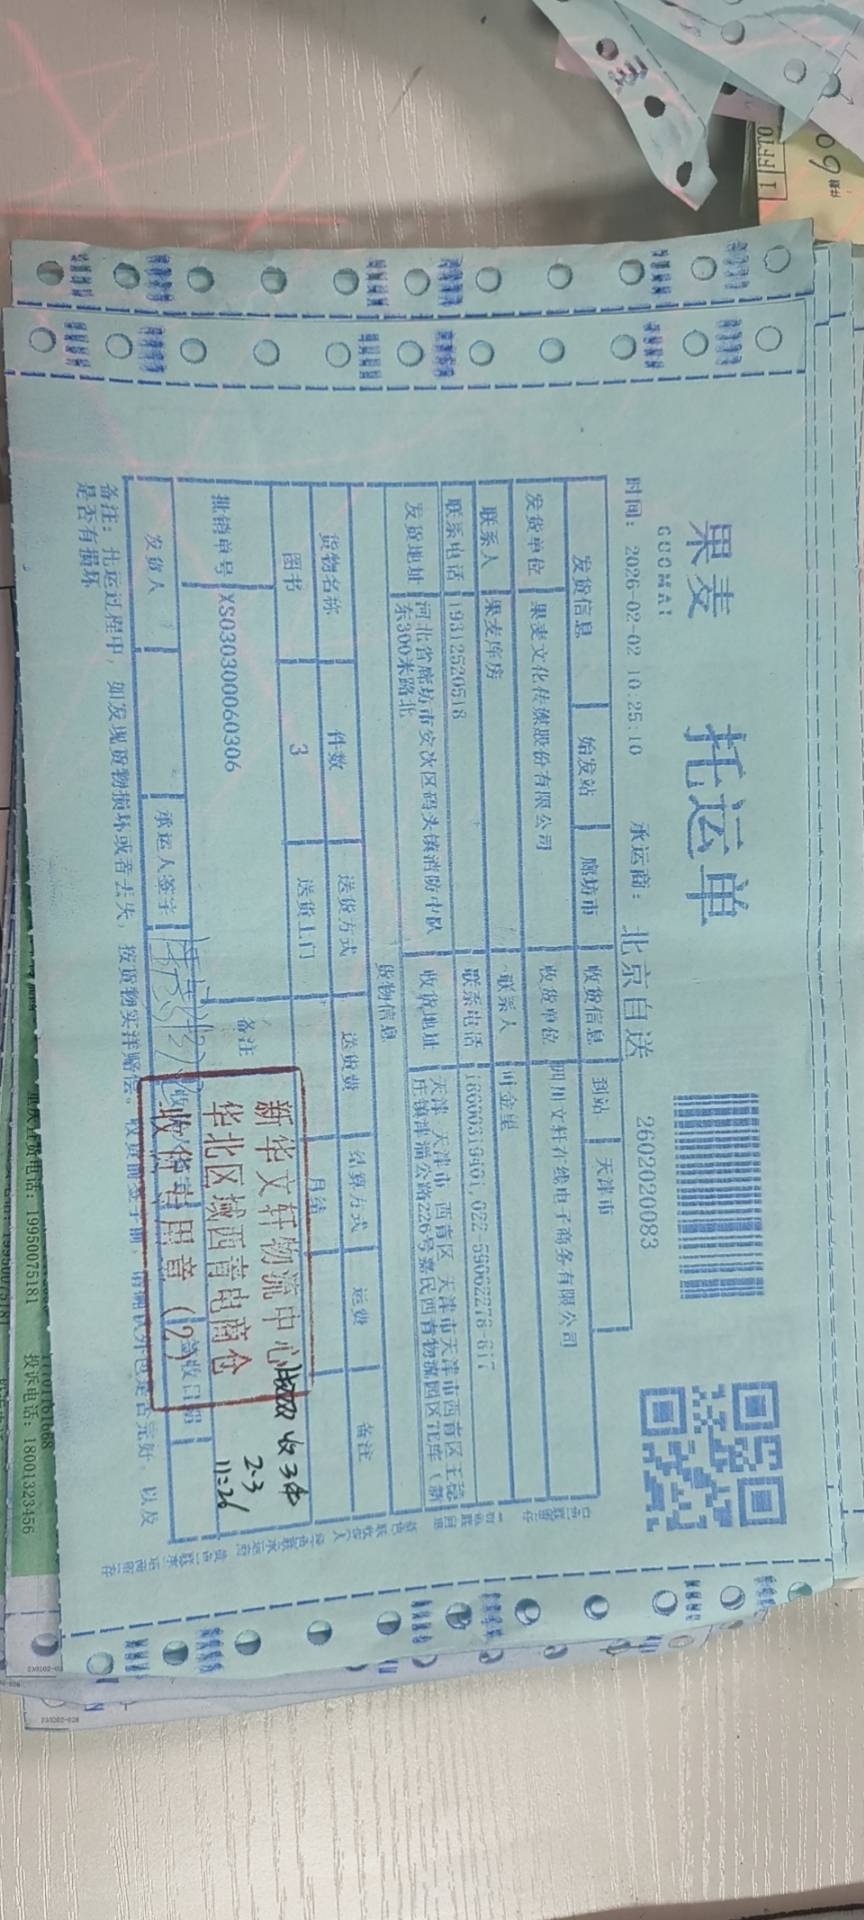 果麦
GUOMAI
托运单
2602020083
时间：2026-02-02 10:25:10 承运商：北京自送
发货信息 始发站 廊坊市 收货信息 到站 天津市
发货单位 果麦文化传媒股份有限公司 收货单位 四川文轩在线电子商务有限公司
联系人 果麦库房 联系人
联系电话 19312520518 联系电话
发货地址 河北省廊坊市安次区码头镇消防中队东300米路北 收货地址 天津 天津市 西青区 天津市天津市西青区王稳庄镇津淄公路226号嘉民西青物流园区
货物信息
货物名称 件数 送货方式 送货费 结算方式 运费 备注
图书 3 送货上门 月结
批销单号 XS030300060306 备注
发货人 承运人签字 签收日期
备注：托运过程中，如发现货物损坏或者丢失，按货物实洋赔偿。
是否有损坏
新华文轩物流中心
华北区域西青电商仓
收货专用章（2）
收3件
2.3
11:26
19950075181
投诉电话：18001323456